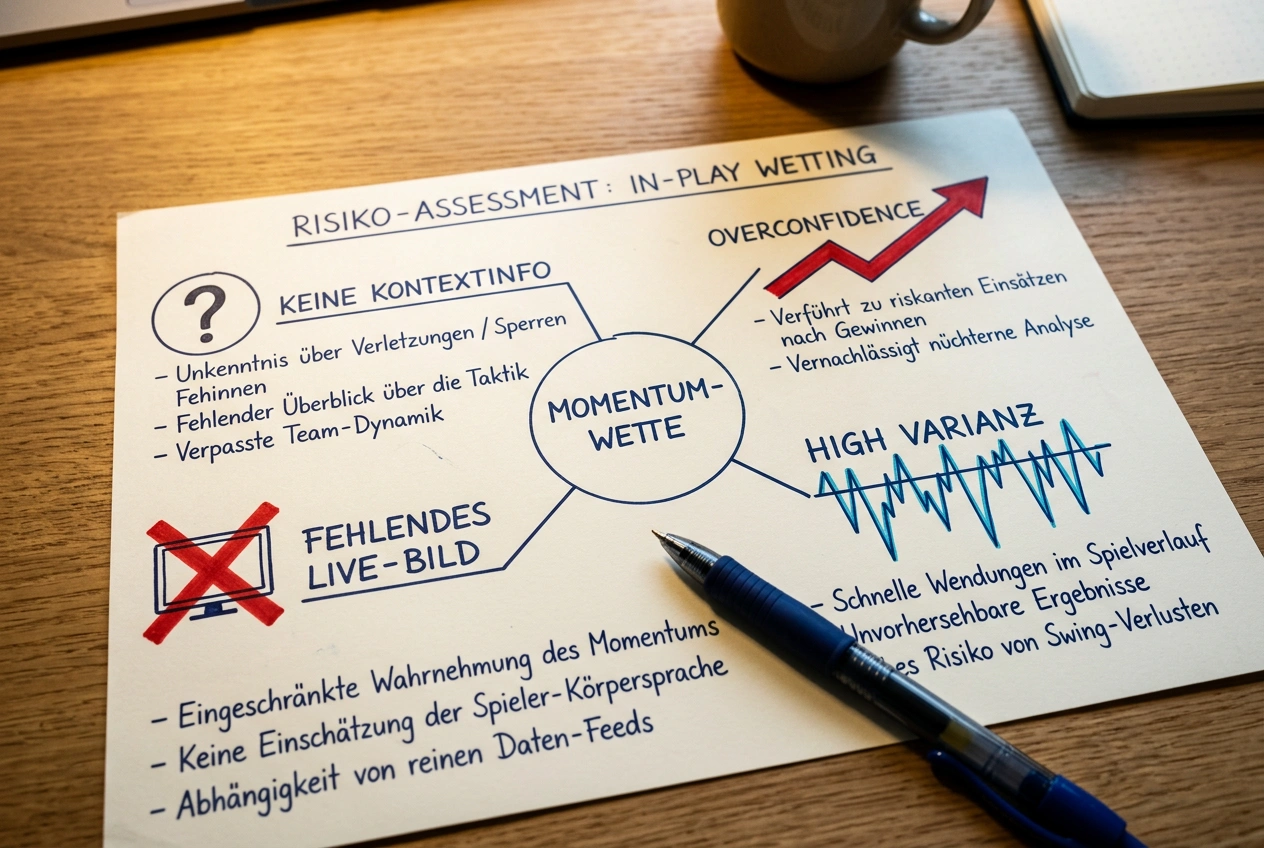 RISIKO-ASSESSMENT: IN-PLAY WETTING
?
KEINE KONTEXTINFO
- Unkenntnis über Verletzungen / Sperren
Fehinnen
- Fehlender Überblick über die Taktik
- Verpasste Team-Dynamik
OVERCONFIDENCE
- Verführt zu riskanten Einsätzen
nach Gewinnen
- Vernachlässigt nüchterne Analyse
MOMENTUM-
WETTE
FEHLENDES
LIVE-BILD
- Eingeschränkte Wahrnehmung des Momentums
- Keine Einschätzung der Spieler-Körpersprache
- Abhängigkeit von reinen Daten-Feeds
HIGH VARIANZ
- Schnelle Wendungen im Spielverlauf
Unvorhersehbare Ergebnisse
Risiko von Swing-Verlusten